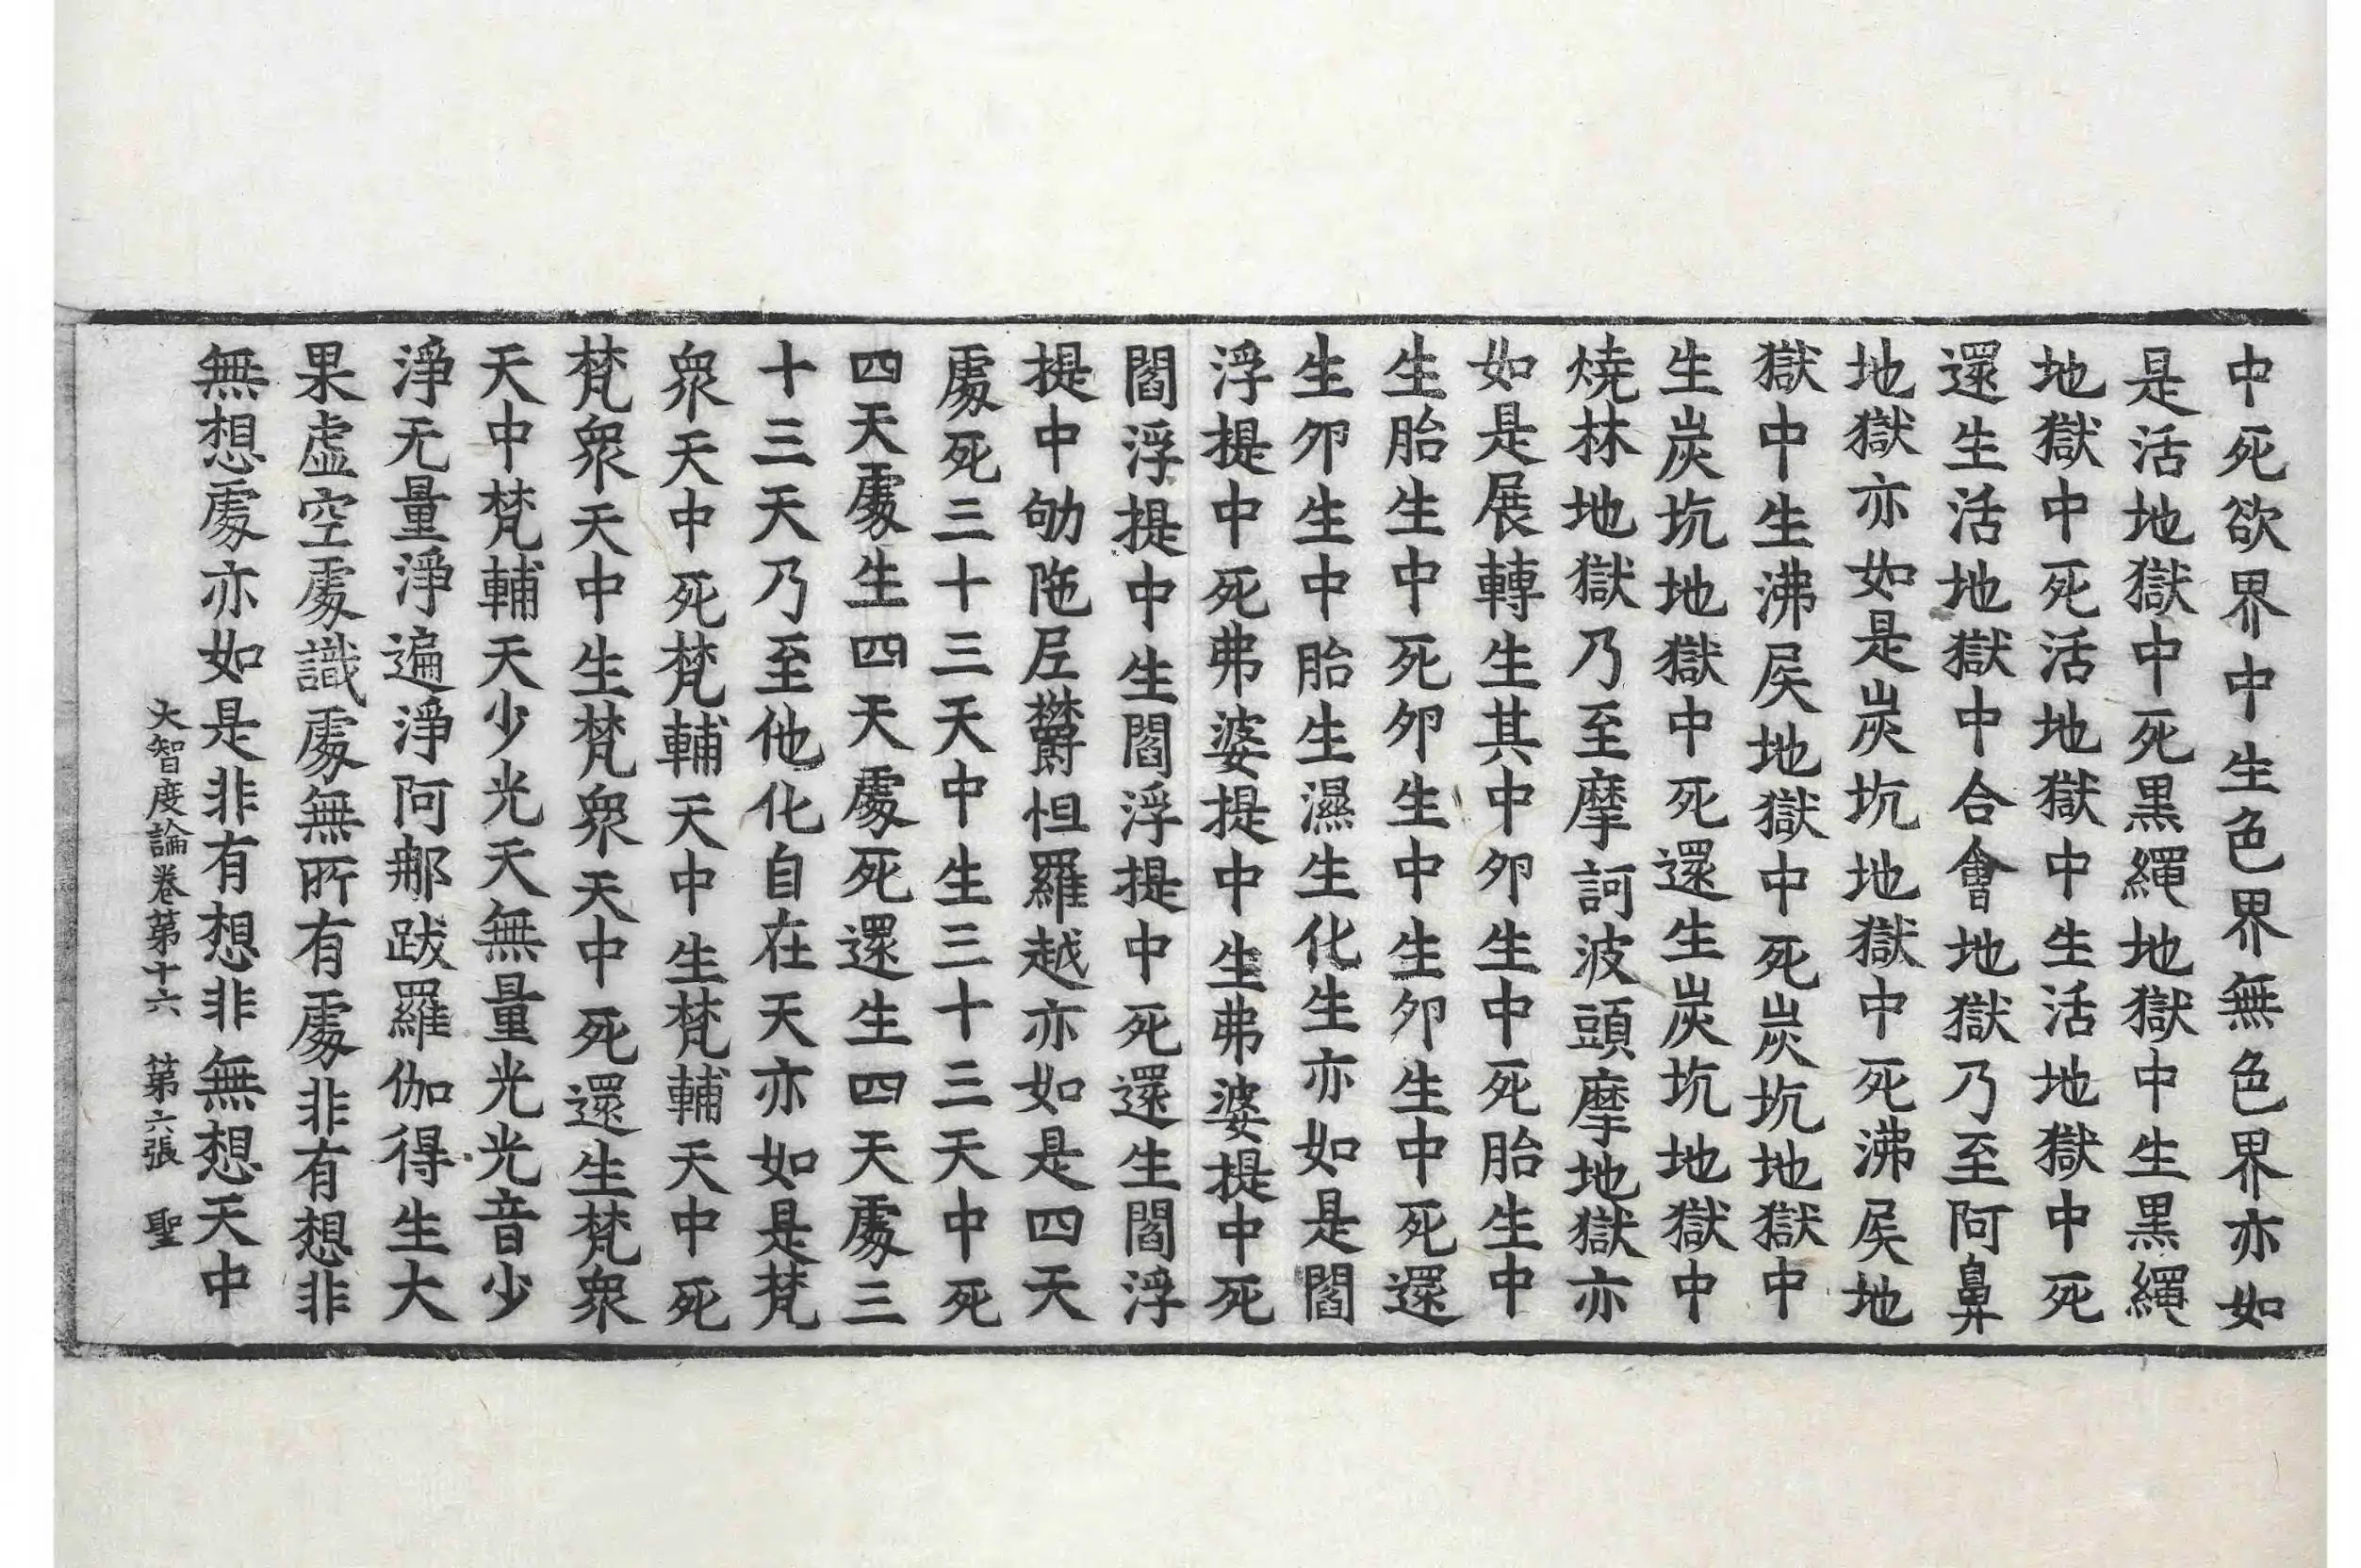 中死欲界中生色界無色界亦如
是活地獄中死黒繩地獄中生黒繩
地獄中死活地獄中生活地獄中死
還生活地獄中合會地獄乃至阿鼻
地獄亦如是炭坑地獄中死沸屎地
獄中生沸屎地獄中死炭坑地獄中
生炭坑地獄中死還生炭坑地獄中
燒林地獄乃至摩訶波頭摩地獄亦
如是展轉生其中夘生中死胎生中
生胎生中死夘生中生夘生中死還
生夘生中胎生濕生化生亦如是閻
浮提中死弗婆提中生弗婆提中死
閻浮提中生閻浮提中死還生閻浮
提中劬陁尼欝怛羅越亦如是四天
處死三十三天中生三十三天中死
四天處生四天處死還生四天處三
十三天乃至他化自在天亦如是梵
衆天中死梵輔天中生梵輔天中死
梵衆天中生梵衆天中死還生梵衆
天中梵輔天少光天無量光光音少
淨无量淨遍淨阿那跋羅伽得生大
果虛空處識處無所有處非有想非
無想處亦如是非有想非無想天中
大智度論卷第十六　第六張　聖